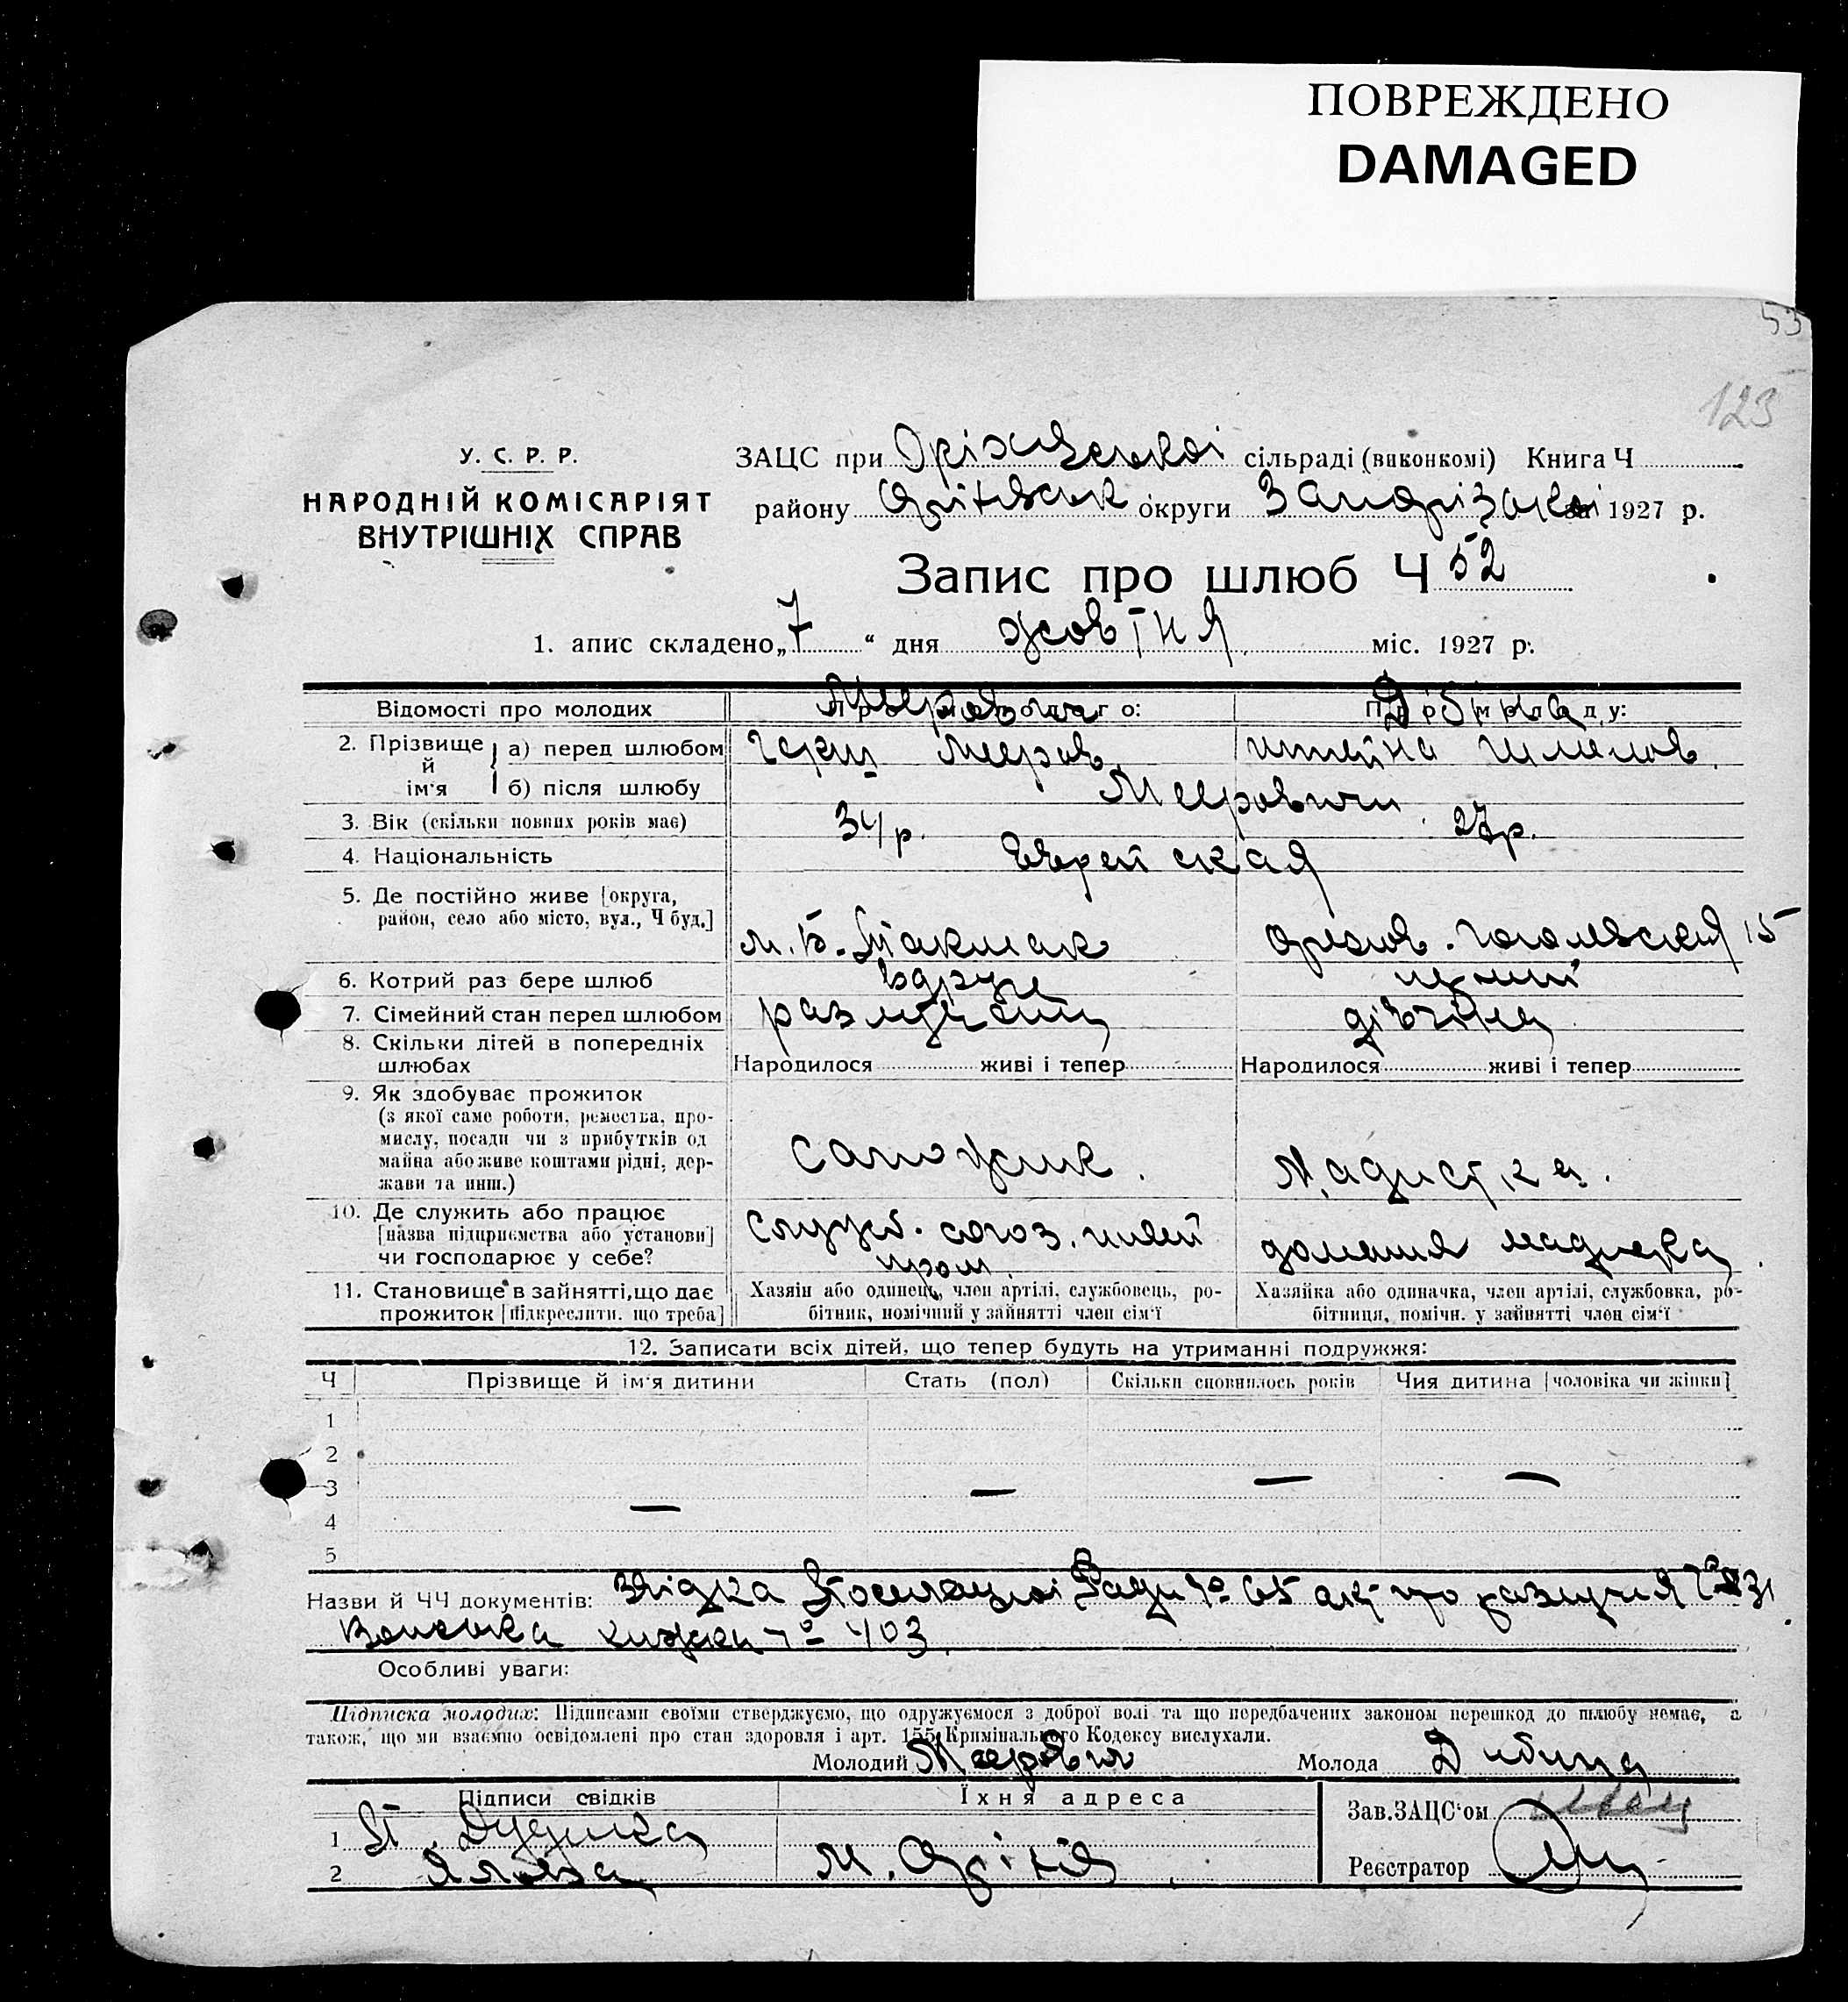 ПОВРЕЖДЕНО
DAMAGED
53
123
У. С. Р. Р.
НАРОДНІЙ КОМІСАРІЯТ
ВНУТРІШНІХ СПРАВ
ЗАЦС при Оріхівській сільраді (виконкомі) Книга Ч
району Оріхівськ округи Запорізької за 1927 р.
Запис про шлюб Ч 52
1. апис складено „7“ дня жовтня міс. 1927 р.
Відомості про молодих
Про молодого:
Про молоду:
Меерович
2. Прізвище й ім'я
а) перед шлюбом
Мееров
б) після шлюбу
Меерович
3. Вік (скільки повних років має)
34 р.
27 р.
4. Національність
Еврейская
5. Де постійно живе [округа,
район, село або місто, вул., Ч буд.]
м. Б. Токмак
Орехов. Гоголевская 15
6. Котрий раз бере шлюб
вдруге
перший
7. Сімейний стан перед шлюбом
дівчина
8. Скільки дітей в попередніх
шлюбах
Народилося живі і тепер
Народилося живі і тепер
9. Як здобуває прожиток
(з якої саме роботи, ремества, про-
мислу, посади чи з прибутків од
майна або живе коштами рідні, дер-
жави та инш.)
Сапожник.
Модистка.
10. Де служить або працює
[назва підприємства або установи]
чи господарює у себе?
Служб. союз. швей
пром.
домашня модистка
11. Становище в зайнятті, що дає
прожиток [підкреслити, що треба]
Хазяїн або одинець, член артілі, службовець, ро-
бітник, помічний у зайнятті член сім'ї
Хазяйка або одиначка, член артілі, службовка, ро-
бітниця, помічн. у зайнятті член сім'ї
12. Записати всіх дітей, що тепер будуть на утриманні подружжя:
Ч Прізвище й ім'я дитини Стать (пол) Скільки сповнилось років Чия дитина [чоловіка чи жінки]
1
2
3
4
5
— — — —
Назви й ЧЧ документів: Ради № 65 акт про
книжка № 403.
Особливі уваги:
Підписка молодих: Підписами своїми стверджуємо, що одружуємося з доброї волі та що передбачених законом перешкод до шлюбу немає, а
також, що ми взаємно освідомлені про стан здоровля і арт. 155 Кримінального Кодексу вислухали.
Молодий Меерович Молода
Підписи свідків
Їхня адреса
Зав. ЗАЦС'ом
1
2
м. Оріхів
Реєстратор